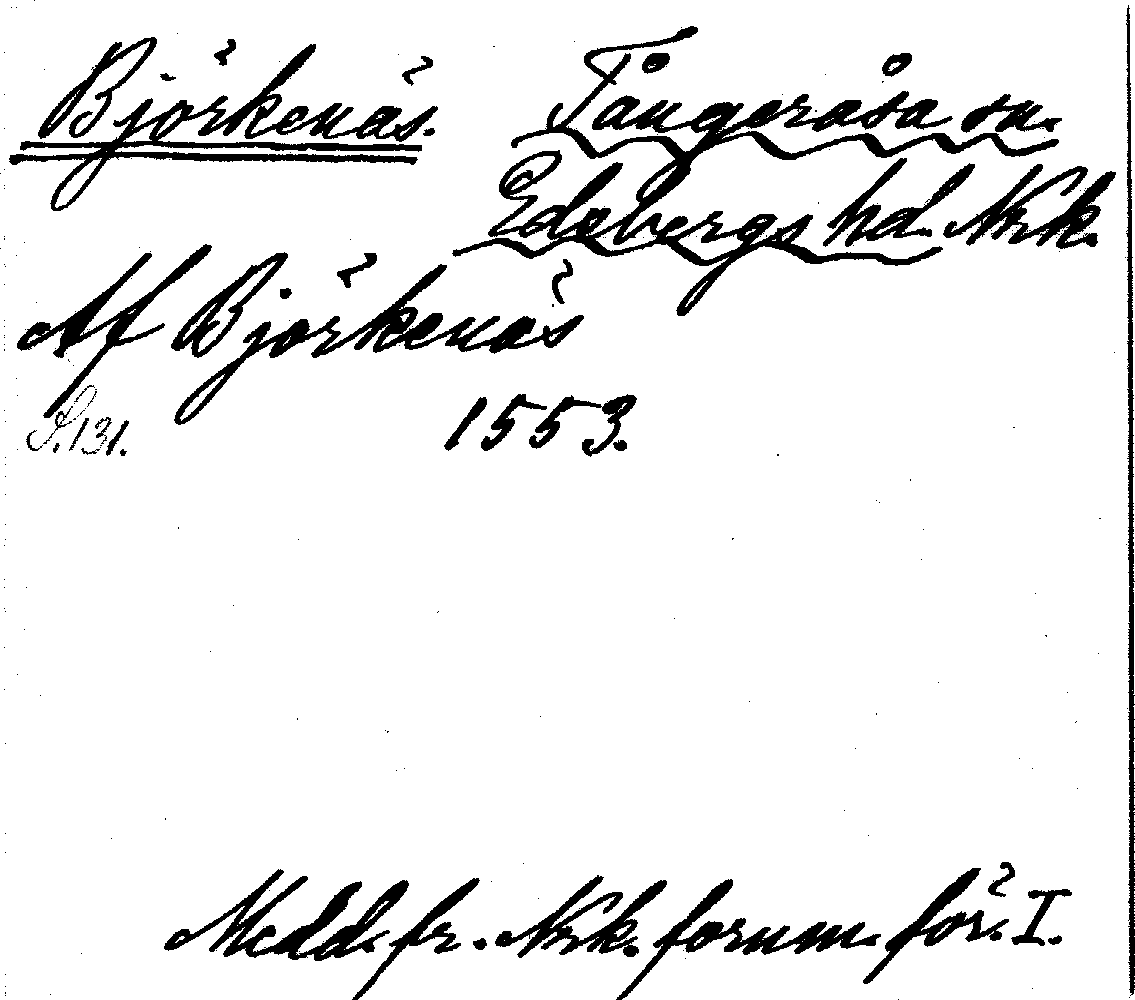 Björkenäs. Tångeråsa sn.
Edsbergs hd. Nrk.
Af Björkenäs
S. 131. 1553.
Medd. fr. Nrk. fornm. för. I.